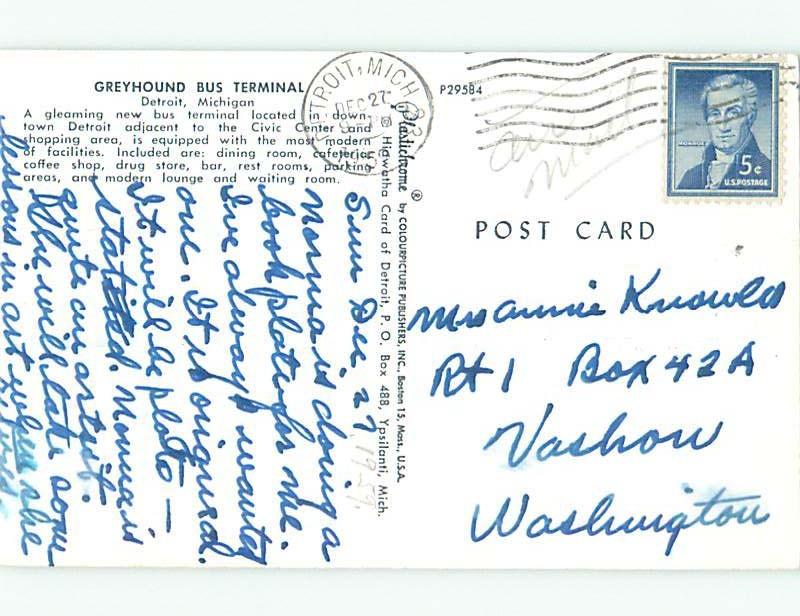 GREYHOUND BUS TERMINAL
Detroit, Michigan
A gleaming new bus terminal located in down-
town Detroit adjacent to the Civic Center and
shopping area, is equipped with the most modern
of facilities. Included are: dining room, cafeteria,
coffee shop, drug store, bar, rest rooms, parking
areas, and modern lounge and waiting room.
Sun Dec. 27, 1959.
Norma is doing a
book plate for me.
I've always wanted
one. It is original.
It will be plato —
statified. Norma is
quite an artist.
She will take some
lessons in art when she
Plastichrome ® by COLOURPICTURE PUBLISHERS, INC., Boston 15, Mass., U.S.A.
© Hiawatha Card of Detroit, P. O. Box 488, Ypsilanti, Mich.
DETROIT, MICH
DEC 27
P29584
air
mail
MONROE
5¢
U.S. POSTAGE
POST CARD
Mrs Annie Knowles
Rt 1 Box 42A
Vashon
Washington